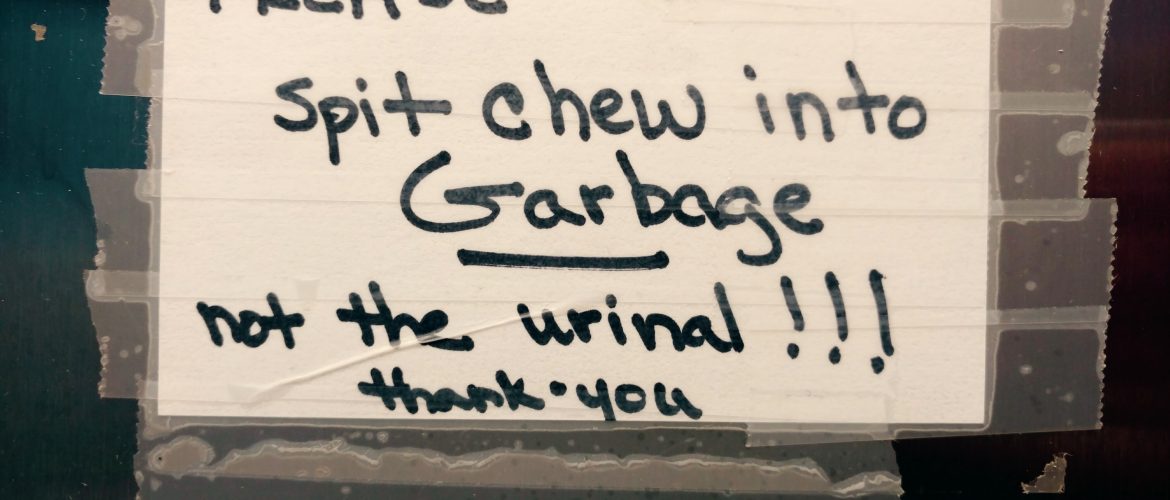 PLEASE
Spit chew into
Garbage
not the urinal !!!
thank-you